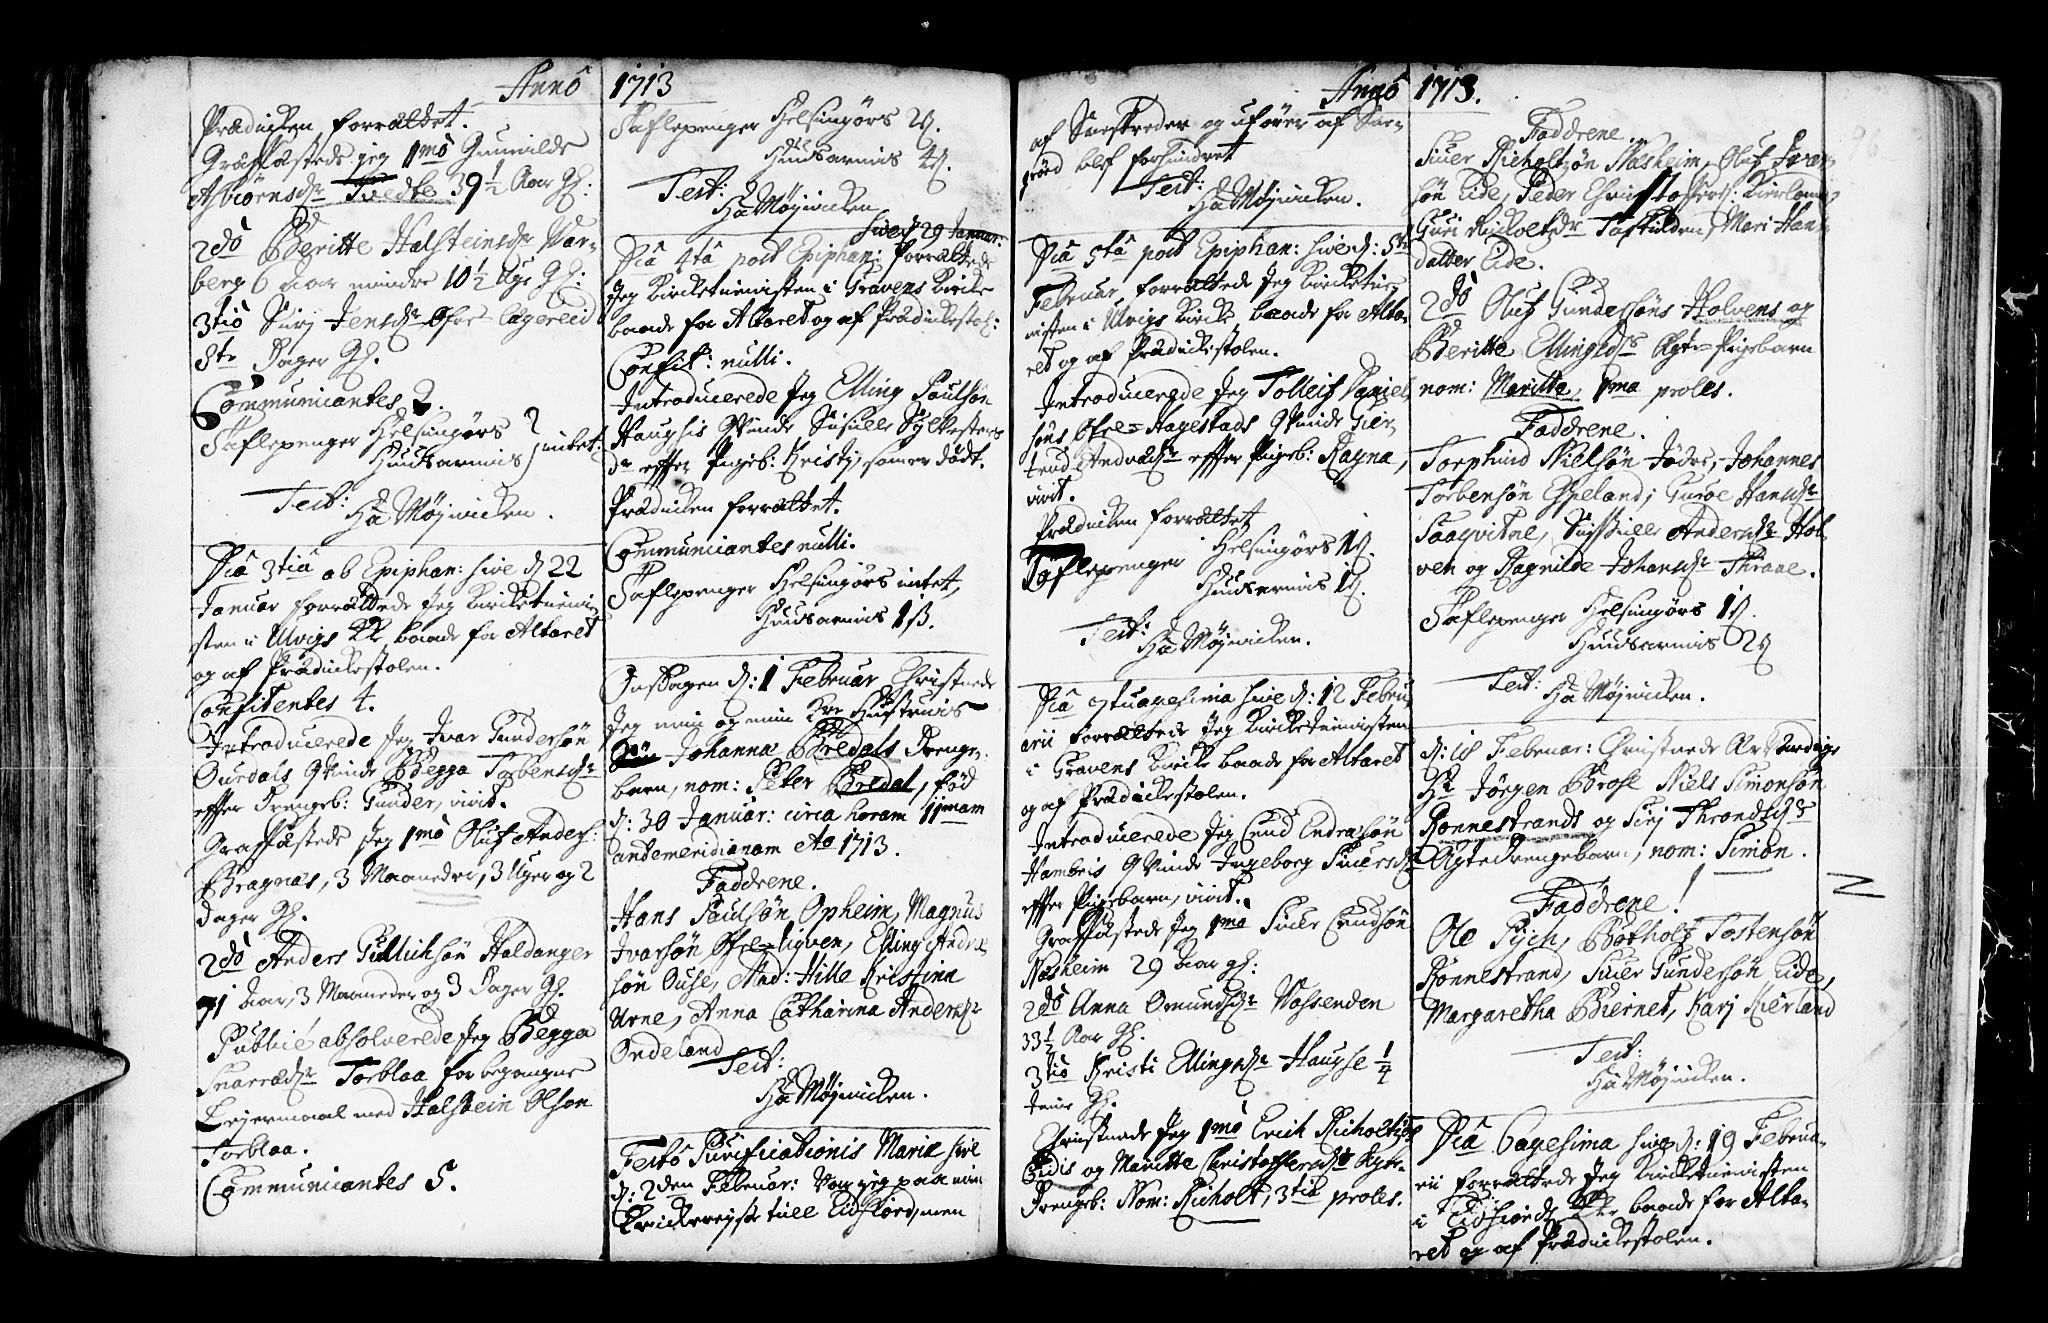 Anno 1713
Prædicken forrættet.
Graffæstede jeg 1mo Gunnilde
Asbiørnsdr Tvedte 39 1/2 Aar Gl:
2do Beritte Halsteinsdr Var-
berg 6 Aar mindre 10 1/2 Uge Gl:
3tio Siri Jensdr
Dager Gl.
Communicantes 2.
Taflepenger Helsingørs
Huusarmis intet.
Test:
Ha Møjnicken.
Dîa 3tia ab Epiphan: sive d 22
Januar forrættede Jeg Kircketieni-
sten i Ulvigs K baade for Altaret
og af Prædickestolen.
Confitentes 4.
Introducerede Jeg Ivar Gundersøn
Ousdals Qvinde Begga Torbensdr
effter Drengeb: Gunder, vivit.
Graffæstede Jeg 1mo Oluf Anders:
Bragnæs, 3 Maaneder, 3 Uger og 2
dager Gl.
2do Anders Gullichsøn Haldanger
71 Aar, 3 Maaneder og 3 Dager Gl.
Publicè absolverede Jeg Begga
Torblaa for begangne
Leyermaal med Halstein Olson
Torblaa.
Communicantes 5.
Taflepenger Helsingørs 2
Huusarmis 4
Test:
Ha Møjnicken.
sive d 29 Januar:
Dîa 4ta post Epiphan: forrættede
Jeg Kircketienisten i Gravens Kircke
baade for Altaret og af Prædickestol:
Confit: nulli.
Introducerede Jeg Elling Paulsøn
Haugsis Qvinde Sysille Sylvesters
dr effter Pigeb: Kristj, som er Dødt.
Prædicken forrættet.
Communicantes nulli.
Taflepenger Helsingørs intet,
Huusarmis 1 ß.
Onsdagen d: 1 Februar Christnede
Jeg min og min Kre Hustruis
Johanna Bredals Drenge-
barn, nom: Peter Bredal, fød
d: 30 Januar: circa horam 11mam
antemeridianam Ao 1713.
Faddrene.
Hans Paulsøn Opheim, Magnus
Ivarsøn Øfre=Ligven, Elling Andræ
søn Ouse, Mad: Hille Kristinn
Urne, Anna Catharina Andersdr
Ondeland
Test:
Ha Møjnicken.
Festo Purificationis Mariæ sive
d: 2den Februar: Var jeg paa min
reyse till Eidfiord, men
Anno 1713.
af Sneeskreder og ufører af Snee-
blef forhindret
Test:
Ha Møjnicken.
Dîa 5ta post Epiphan: sive d: 5te
Februar, forrættede Jeg Kircketie-
nisten i Ulvigs Kircke baade for Alta-
ret og af Prædickestolen.
Introducerede Jeg Tolleif Daniel
søns Øfre=Hagestads Qvinde Gier-
trud effter Pigeb: Ragna,
vivit.
Prædicken forrættet
Taflepenger Helsingørs 1
Huusarmis 1
Test:
Ha Møjnicken.
Dîa 7tuagesima sive d: 12 Febru
arii forrættede Jeg Kircketienisten
i Gravens Kircke baade for Altaret
og af Prædickestolen.
Introducerede Jeg Cnud Endresøn
Hambris Qvinde Ingeborg Siursdr
effter Pigebarn, vivit.
Graffæstede Jeg 1mo Siuer Cnudsøn
Næsheim 29 Aar gl:
2do Anna Omundsdr Vossenden
33 1/2 Aar Gl.
3tio Kristi Ellingsdr Haugse 1/4
Gl.
Christnede Jeg 1mo Erich Richoltsøn
Eidis og Maritte Christophersdr Ægte-
Drengeb: Nom: Richolt, 3tia proles.
Faddrene.
Siuer Richoltzøn Næsheim, Oluf
søn Eide, Peder
Guri Richoltzdr Mari Han
datter Eide.
2do Oluf Gundersøns Holvens og
Beritte Ellingsdrs Ægte=Pigebarn
nom: Maritte, 1ma proles.
Faddrene.
Torphind Nielsøn Johannes
Torbensøn Espeland; Guroe Hansdr
Saaqvitne, Andersdr Hol-
ven og Ragnilde Johansdr Thraae.
Taflepenger Helsingørs 1
Huusarmis 2
Test:
Ha Møjnicken.
d: 15 Februar: Christnede
Hr Jørgen Brose Niels Simonsøn
Rønnestrands og Siri Throndsdrs
Ægte Drengebarn, nom: Simon.
Faddrene!
Ole Botholf Tostensøn
Rønnestrand, Siuer Gundersøn Eide,
Margaretha Biernet, Karj Kierland
Test:
Ha Møjnicken.
Dîa 6agesima sive d: 19 Februa-
rii forrættede Jeg Kircketienisten
i Eidfiords baade for Alta-
ret og af Prædickestolen.